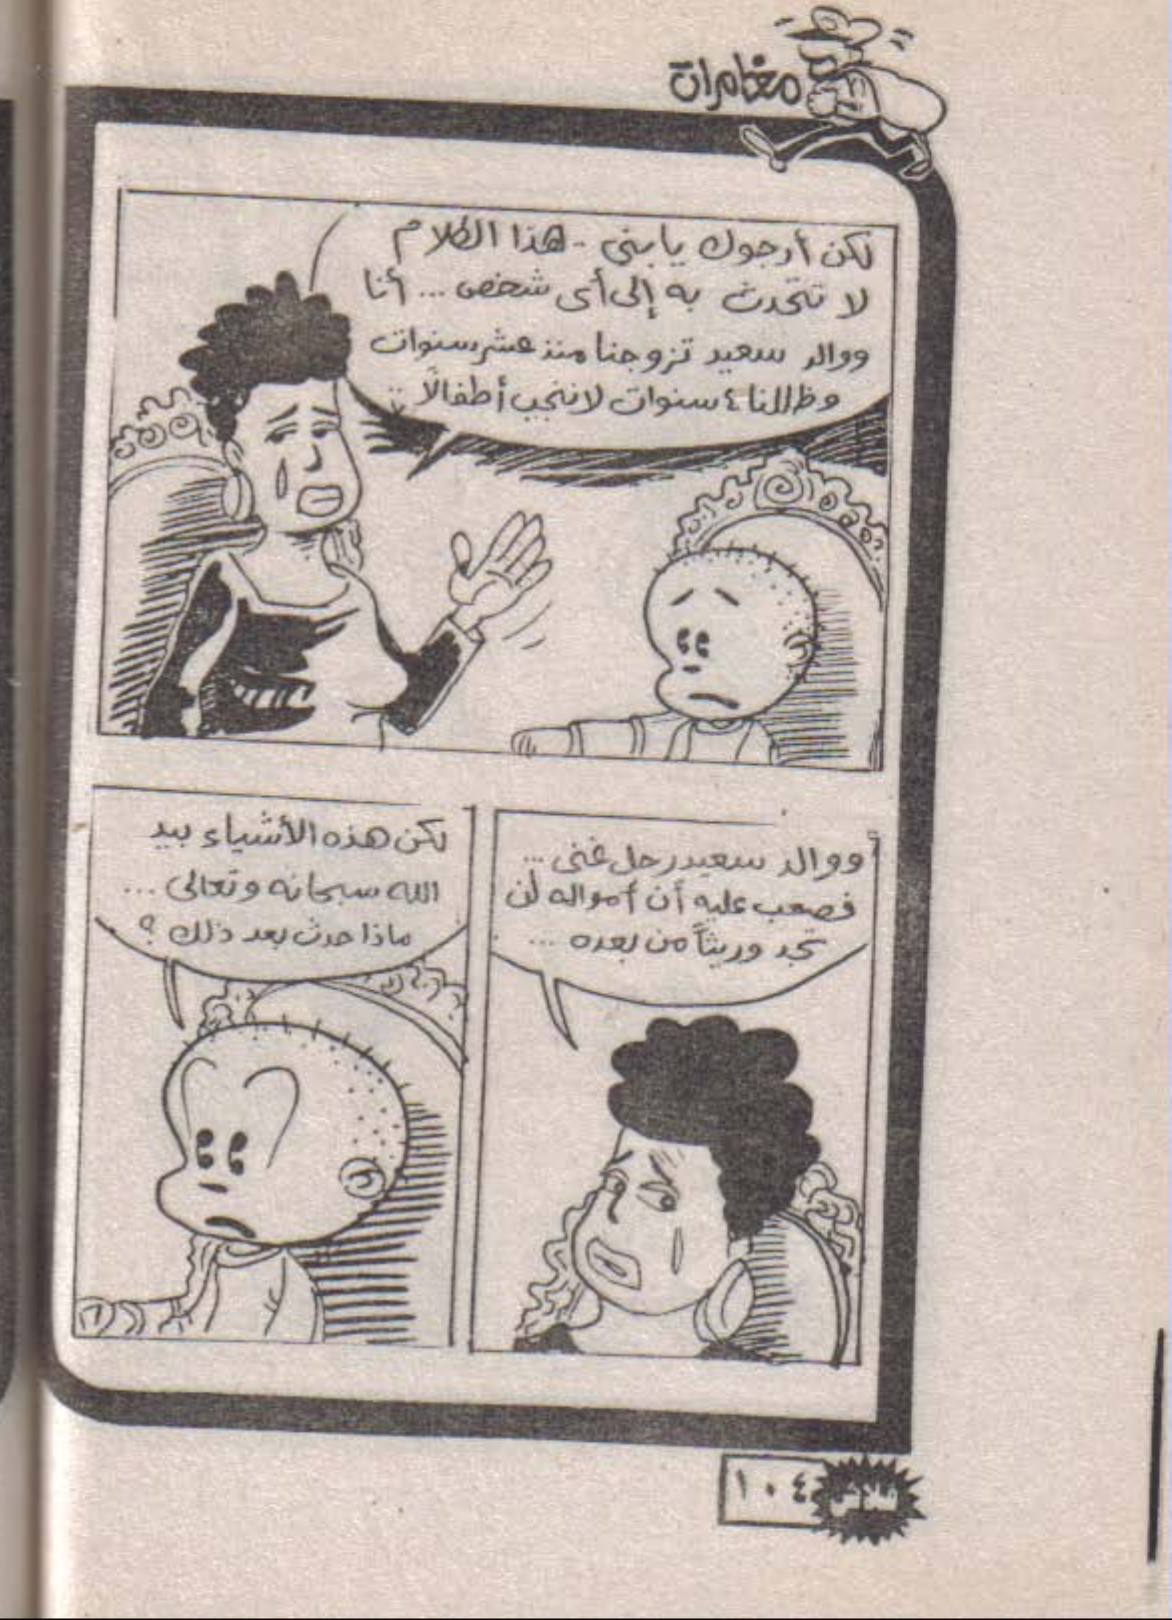 مغامرات
لكن أرجوك يا بنى .. هذا الكلام
لا تتحدث به إلى أى شخص ... أنا
ووالد سعيد تزوجنا منذ عشر سنوات
وظللنا ٤ سنوات لا ننجب أطفالًا ..
ووالد سعيد رجل غنى ...
فصعب عليه أن أمواله لن
تجد وريثاً من بعده ...
لكن هذه الأشياء بيد
الله سبحانه وتعالى ...
ماذا حدث بعد ذلك ؟
فلاش
١٠٤